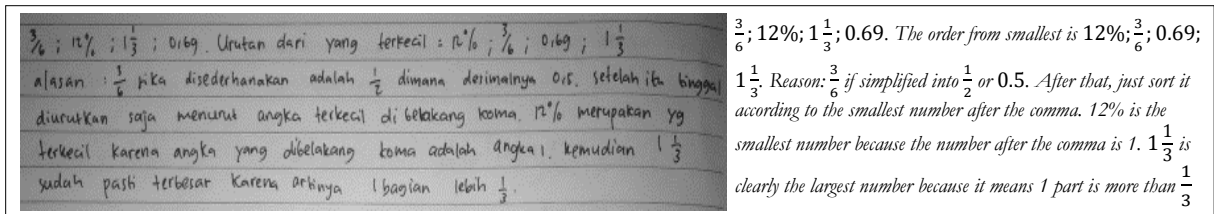 3/6 ; 12% ; 1 1/3 ; 0,69. Urutan dari yang terkecil : 12% ; 3/6 ; 0,69 ; 1 1/3
alasan : 3/6 jika disederhanakan adalah 1/2 dimana desimalnya 0,5. setelah itu tinggal
diurutkan saja menurut angka terkecil di belakang koma. 12% merupakan yg
terkecil karena angka yang dibelakang koma adalah angka 1. kemudian 1 1/3
sudah pasti terbesar karena artinya 1 bagian lebih 1/3.
3/6; 12%; 1 1/3; 0.69. The order from smallest is 12%; 3/6; 0.69;
1 1/3. Reason: 3/6 if simplified into 1/2 or 0.5. After that, just sort it
according to the smallest number after the comma. 12% is the
smallest number because the number after the comma is 1. 1 1/3 is
clearly the largest number because it means 1 part is more than 1/3